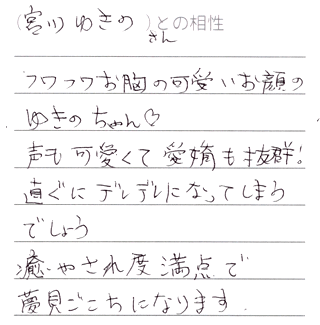 (宮川 ゆきの さん)との相性
フワフワお胸の可愛いお顔の
ゆきのちゃん♡
声も可愛くて愛嬌も抜群!
直ぐにデレデレになってしまう
でしょう
癒やされ度満点で
夢見ごこちになります.